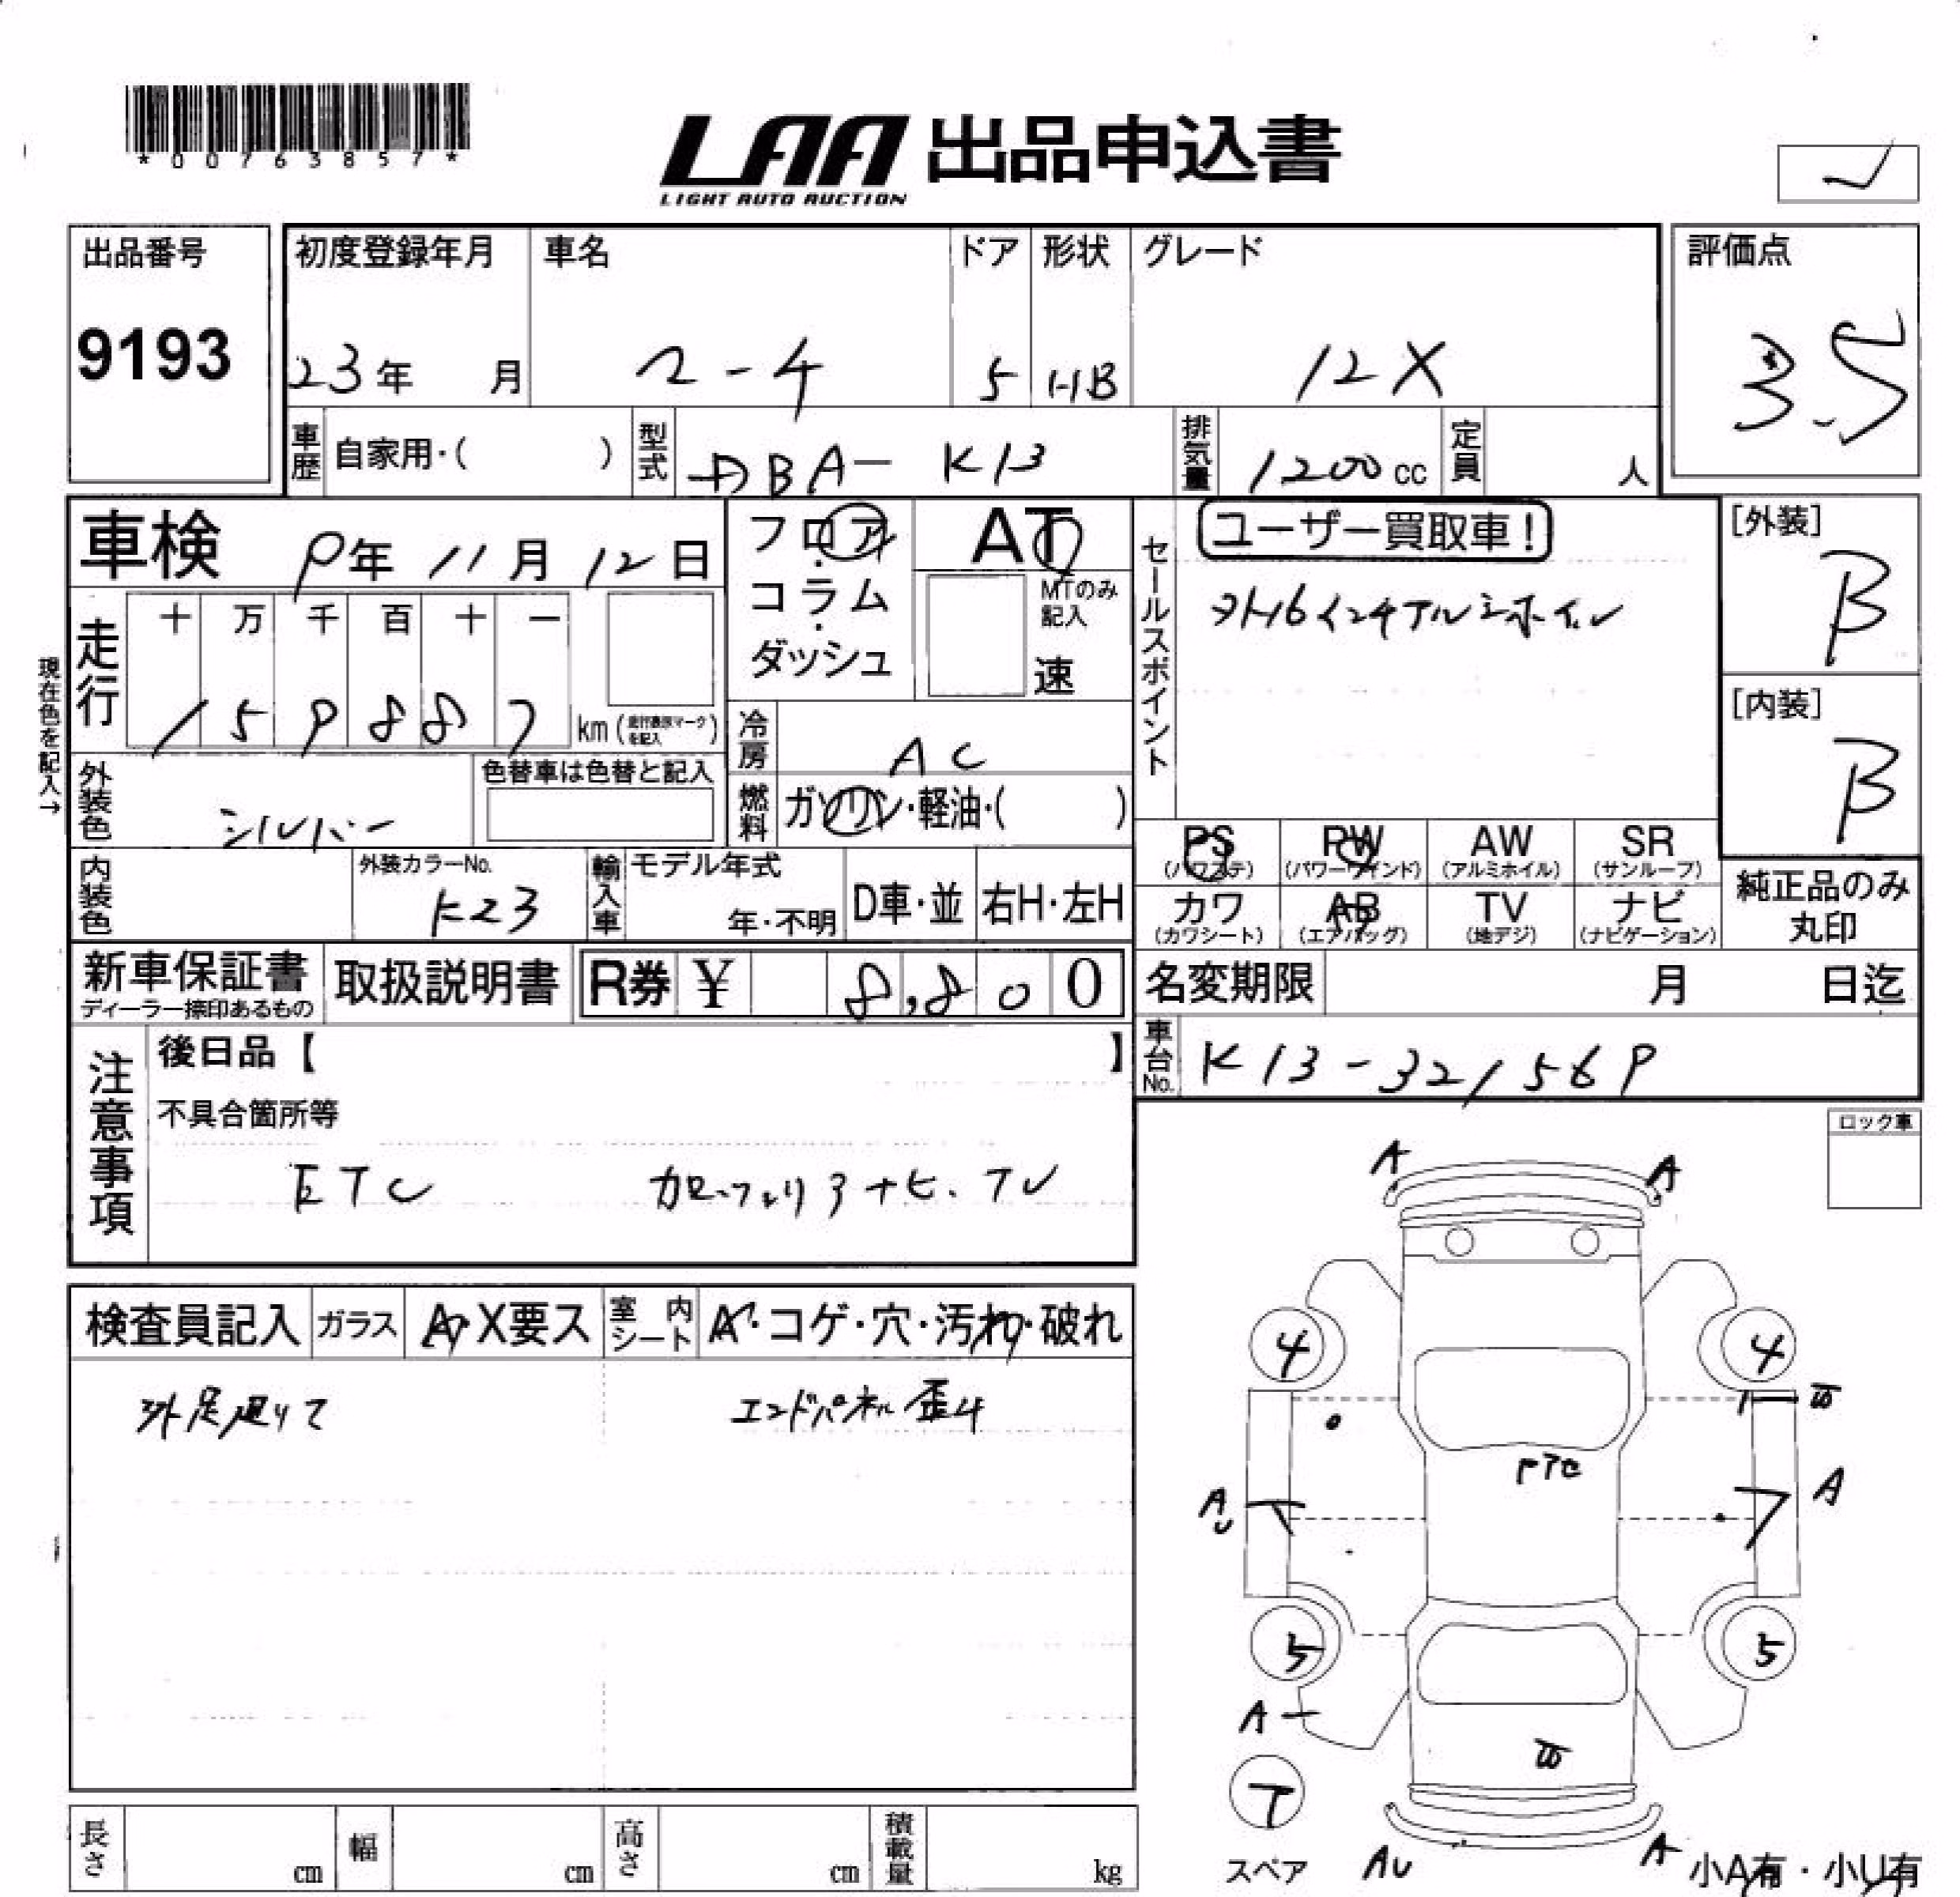 *00763857*
LAA 出品申込書
LIGHT AUTO AUCTION
出品番号 初度登録年月 車名 ドア 形状 グレード 評価点
9193 23年 月 マーチ 5 HB 12X 3.5
車歴 自家用・( ) 型式 DBA-K13 排気量 1200cc 定員 人
車検 9年 11月 12日 フロア・コラム・ダッシュ AT MTのみ記入 速
セールスポイント ユーザー買取車!
外16インチアルミホイル
[外装] B
[内装] B
現在色を記入→
走行 十 万 千 百 十 一
159887 km (走行表示マークを記入)
冷房 AC
外装色 シルバー 色替車は色替と記入
燃料 ガソリン・軽油・( )
PS(パワステ) PW(パワーウインド) AW(アルミホイル) SR(サンルーフ)
カワ(カワシート) AB(エアバッグ) TV(地デジ) ナビ(ナビゲーション) 純正品のみ丸印
内装色 外装カラーNo. K23 輸入車 モデル年式 年・不明 D車・並 右H・左H
新車保証書 ディーラー捺印あるもの 取扱説明書 R券 ¥ 8,800 名変期限 月 日迄
車台No. K13-321569
注意事項 後日品【 】
不具合箇所等
ETC カロッツェリアナビ、TV
ロック車
検査員記入 ガラス A・X要ス 室内シート A・コゲ・穴・汚れ・破れ
外足廻りて エンドパネル歪み
A A
4 4
A
A
U
5 5
A
T
スペア
AU A
小A有・小U有
長さ cm 幅 cm 高さ cm 積載量 kg